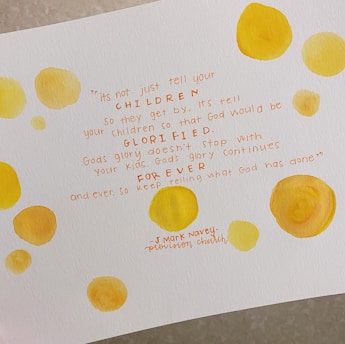 "its not just tell your
CHILDREN
so they get by, it's tell
your children so that God would be
GLORIFIED.
Gods glory doesn't stop with
your kids. Gods glory continues
FOREVER
and ever. so keep telling what God has done"
-J Mark Navey-
provision church